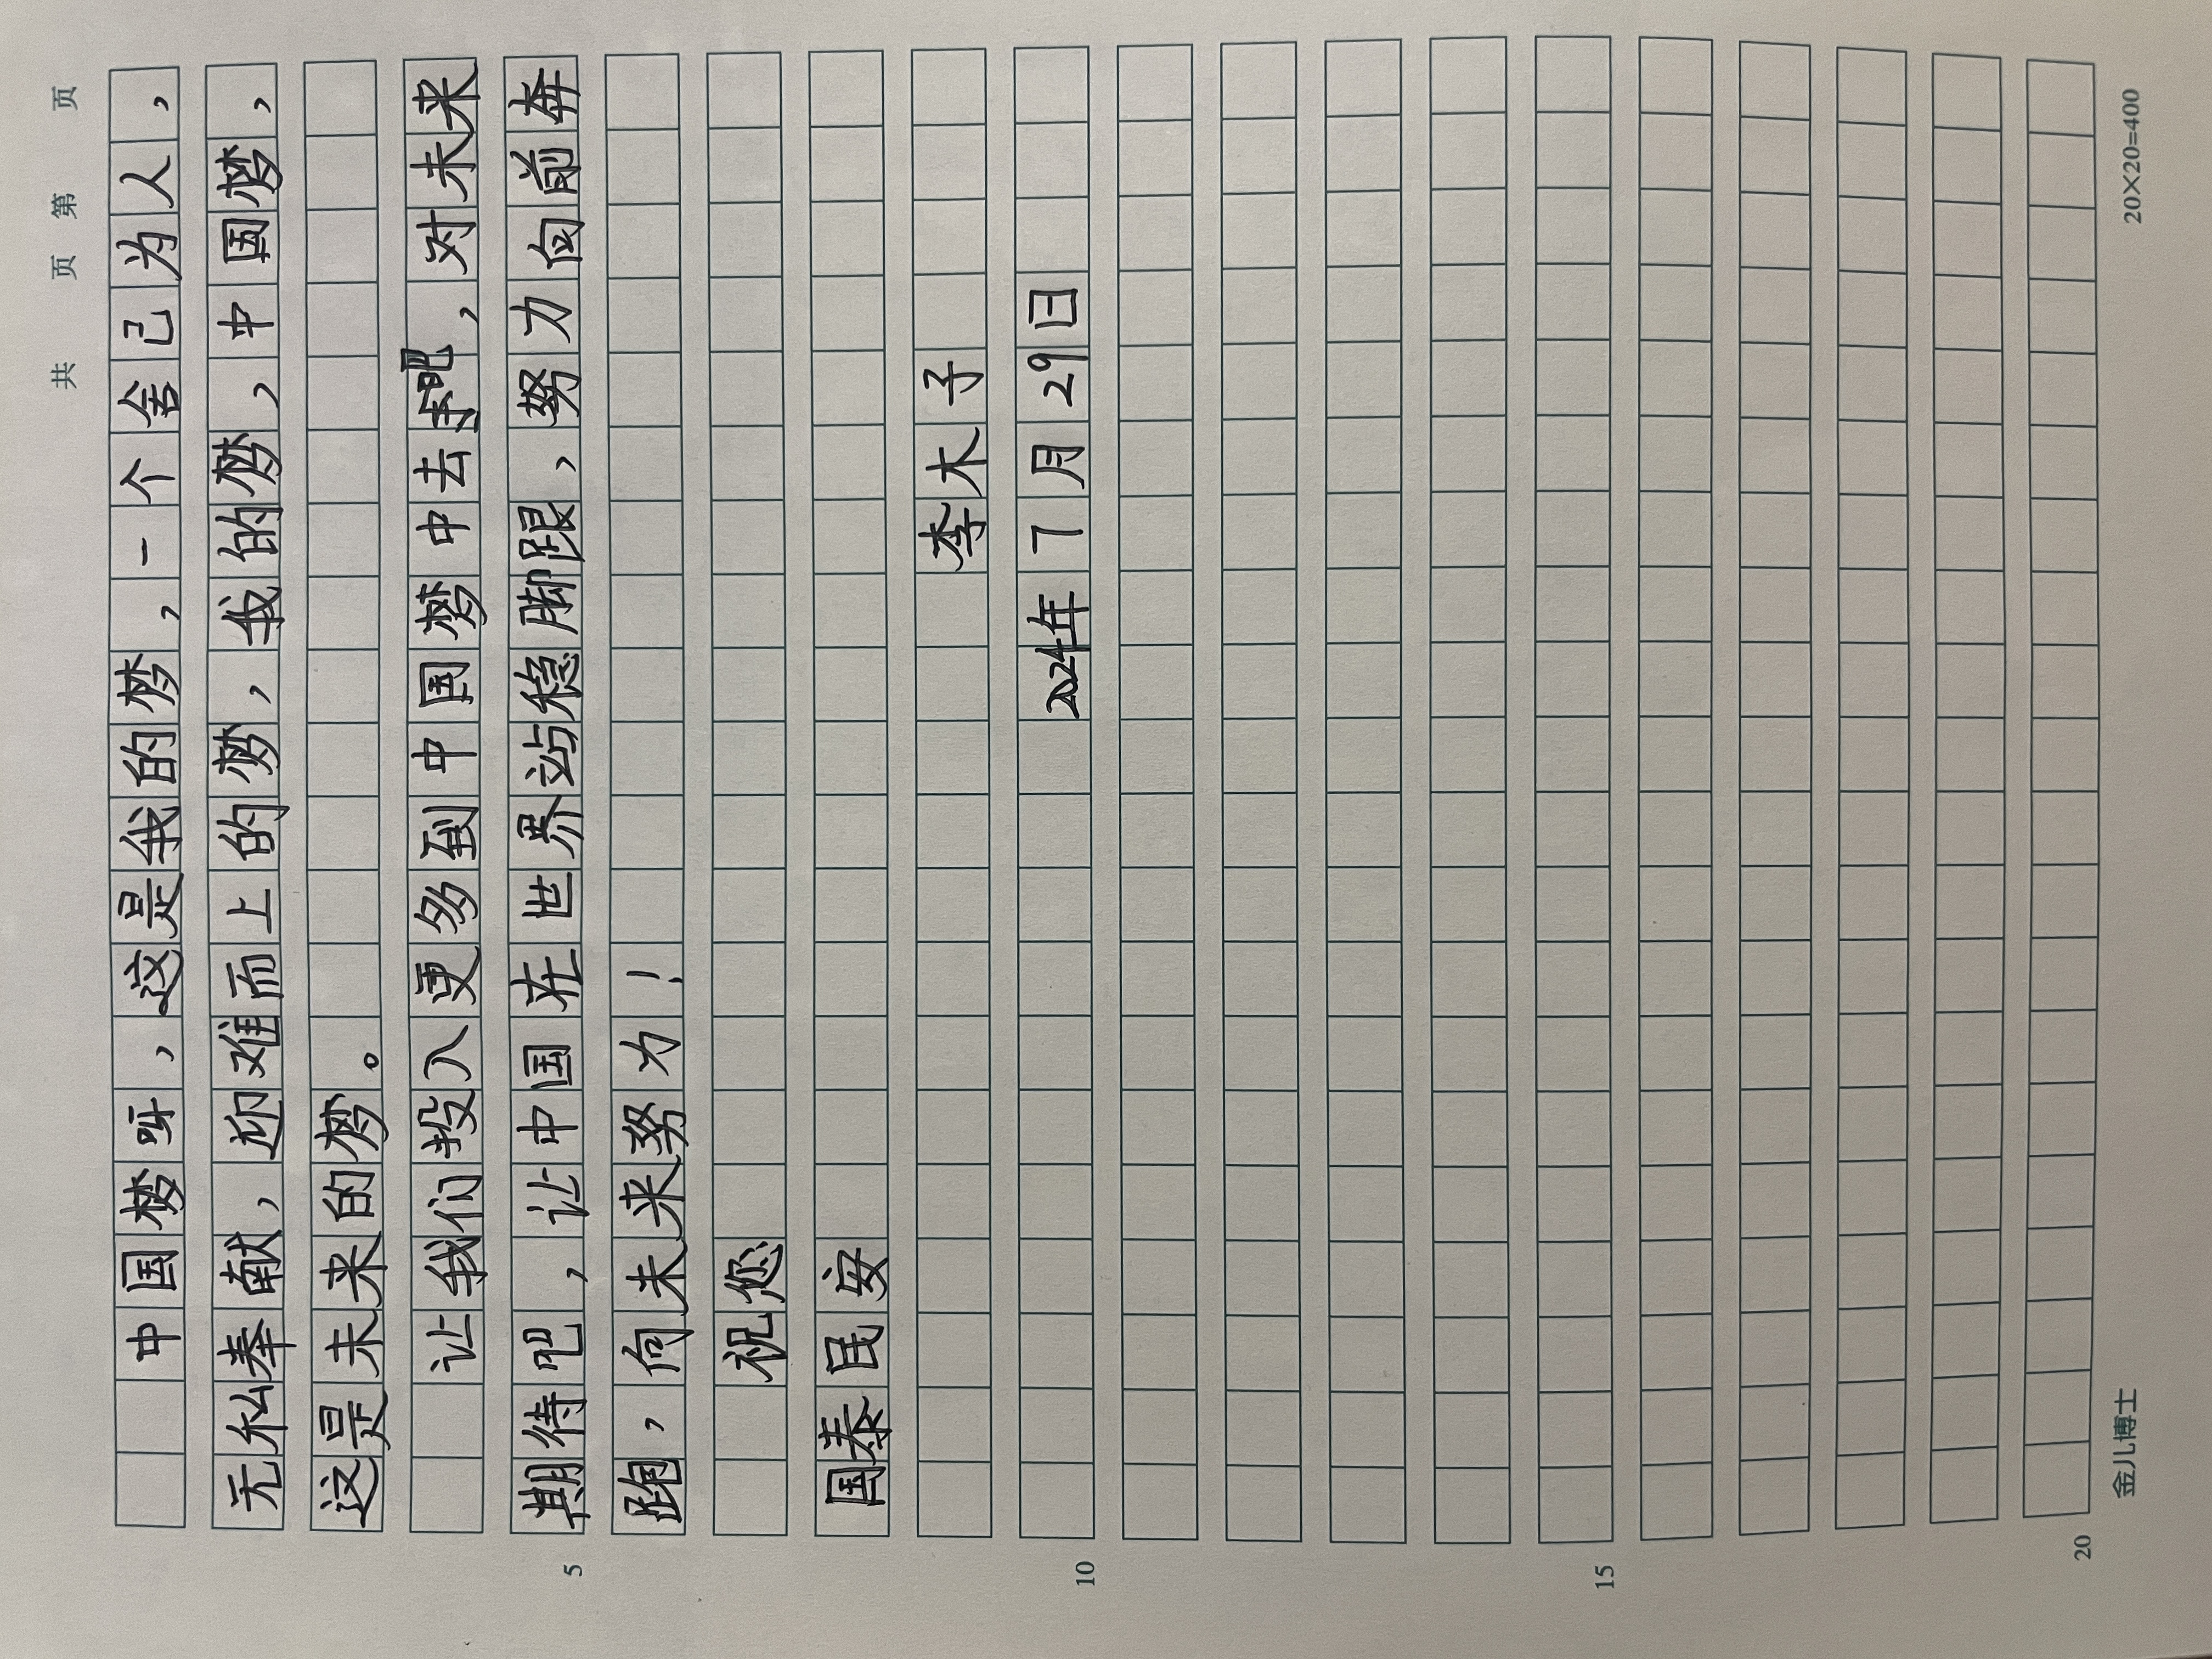 共 页 第 页
中国梦呀，这是我的梦，一个舍己为人，
无私奉献，迎难而上的梦，我的梦，中国梦，
这是未来的梦。
让我们投入更多到中国梦中去吧，对未来
期待吧，让中国在世界站稳脚跟，努力向前奔
跑，向未来努力！
祝您
国泰民安
李木子
2024年7月29日
5
10
15
20
金儿博士 20×20=400